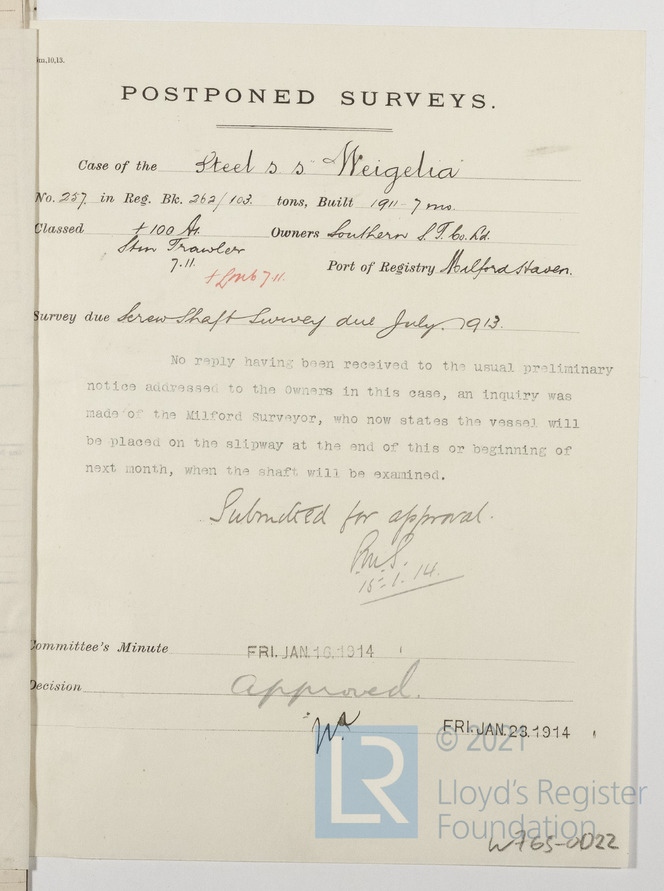 POSTPONED SURVEYS.
Case of the Steel s s Weigelia
No. 257. in Reg. Bk. 262/103 tons, Built 1911-7 mo.
Classed +100 A1. Owners Southern S. T. Co. Ld.
Stm Trawler
7.11.
+LMC 7.11. Port of Registry Milford Haven.
Survey due Screw Shaft Survey due July. 1913.
No reply having been received to the usual preliminary
notice addressed to the Owners in this case, an inquiry was
made of the Milford Surveyor, who now states the vessel will
be placed on the slipway at the end of this or beginning of
next month, when the shaft will be examined.
Submitted for approval.
15-1.14.
Committee's Minute FRI. JAN. 16. 1914
Decision Approved.
FRI. JAN. 23. 1914
LR
© 2021
Lloyd's Register
Foundation
W765-0022